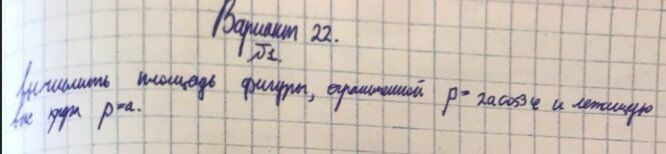 Вариант 22.
№1.
Вычислить площадь фигуры, ограниченной ρ = 2acos3φ и лежащую
вне круга ρ=a.